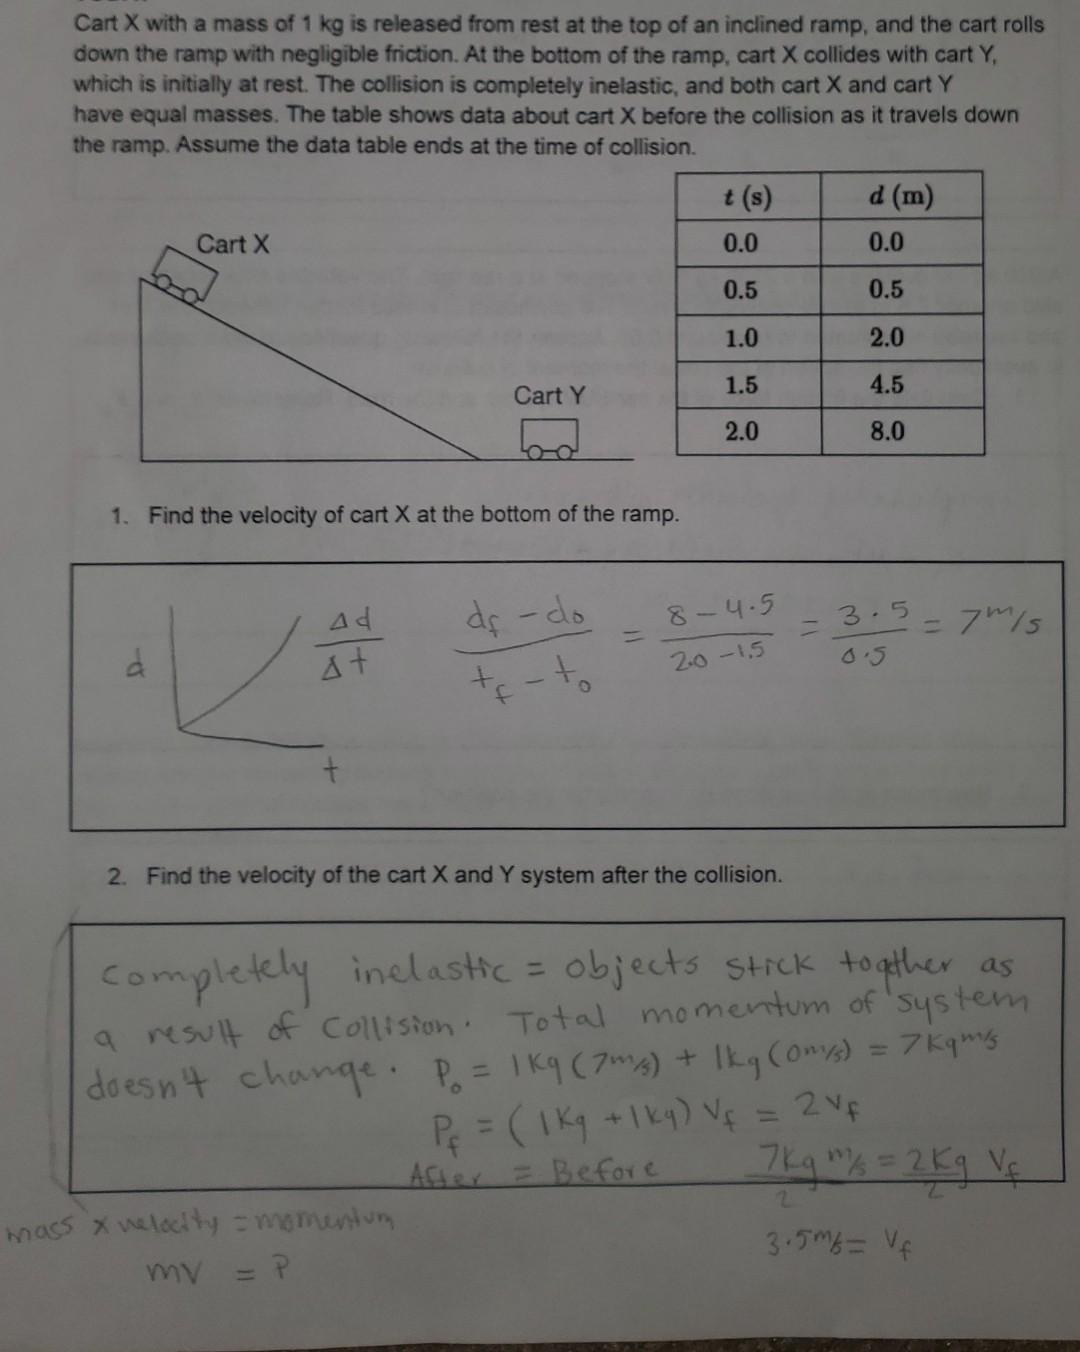 Cart X with a mass of 1 kg is released from rest at the top of an inclined ramp, and the cart rolls
down the ramp with negligible friction. At the bottom of the ramp, cart X collides with cart Y,
which is initially at rest. The collision is completely inelastic, and both cart X and cart Y
have equal masses. The table shows data about cart X before the collision as it travels down
the ramp. Assume the data table ends at the time of collision.
t (s) d (m)
0.0 0.0
0.5 0.5
1.0 2.0
1.5 4.5
2.0 8.0
Cart X
Cart Y
1. Find the velocity of cart X at the bottom of the ramp.
d
t
Δd/Δt (df - do)/(tf - to) = (8 - 4.5)/(2.0 - 1.5) = 3.5/0.5 = 7 m/s
2. Find the velocity of the cart X and Y system after the collision.
completely inelastic = objects stick together as
a result of collision. Total momentum of system
doesn't change. Po = 1Kg (7m/s) + 1kg (0m/s) = 7Kgm/s
Pf = (1Kg + 1Kg) Vf = 2Vf
After = Before 7Kg m/s / 2 = 2Kg Vf / 2
mass x velocity = momentum
3.5m/s = Vf
mv = P